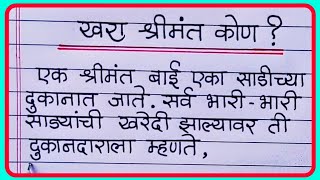 खरा श्रीमंत कोण ?
एक श्रीमंत बाई एका साडीच्या
दुकानात जाते. सर्व भारी-भारी
साड्यांची खरेदी झाल्यावर ती
दुकानदाराला म्हणते,